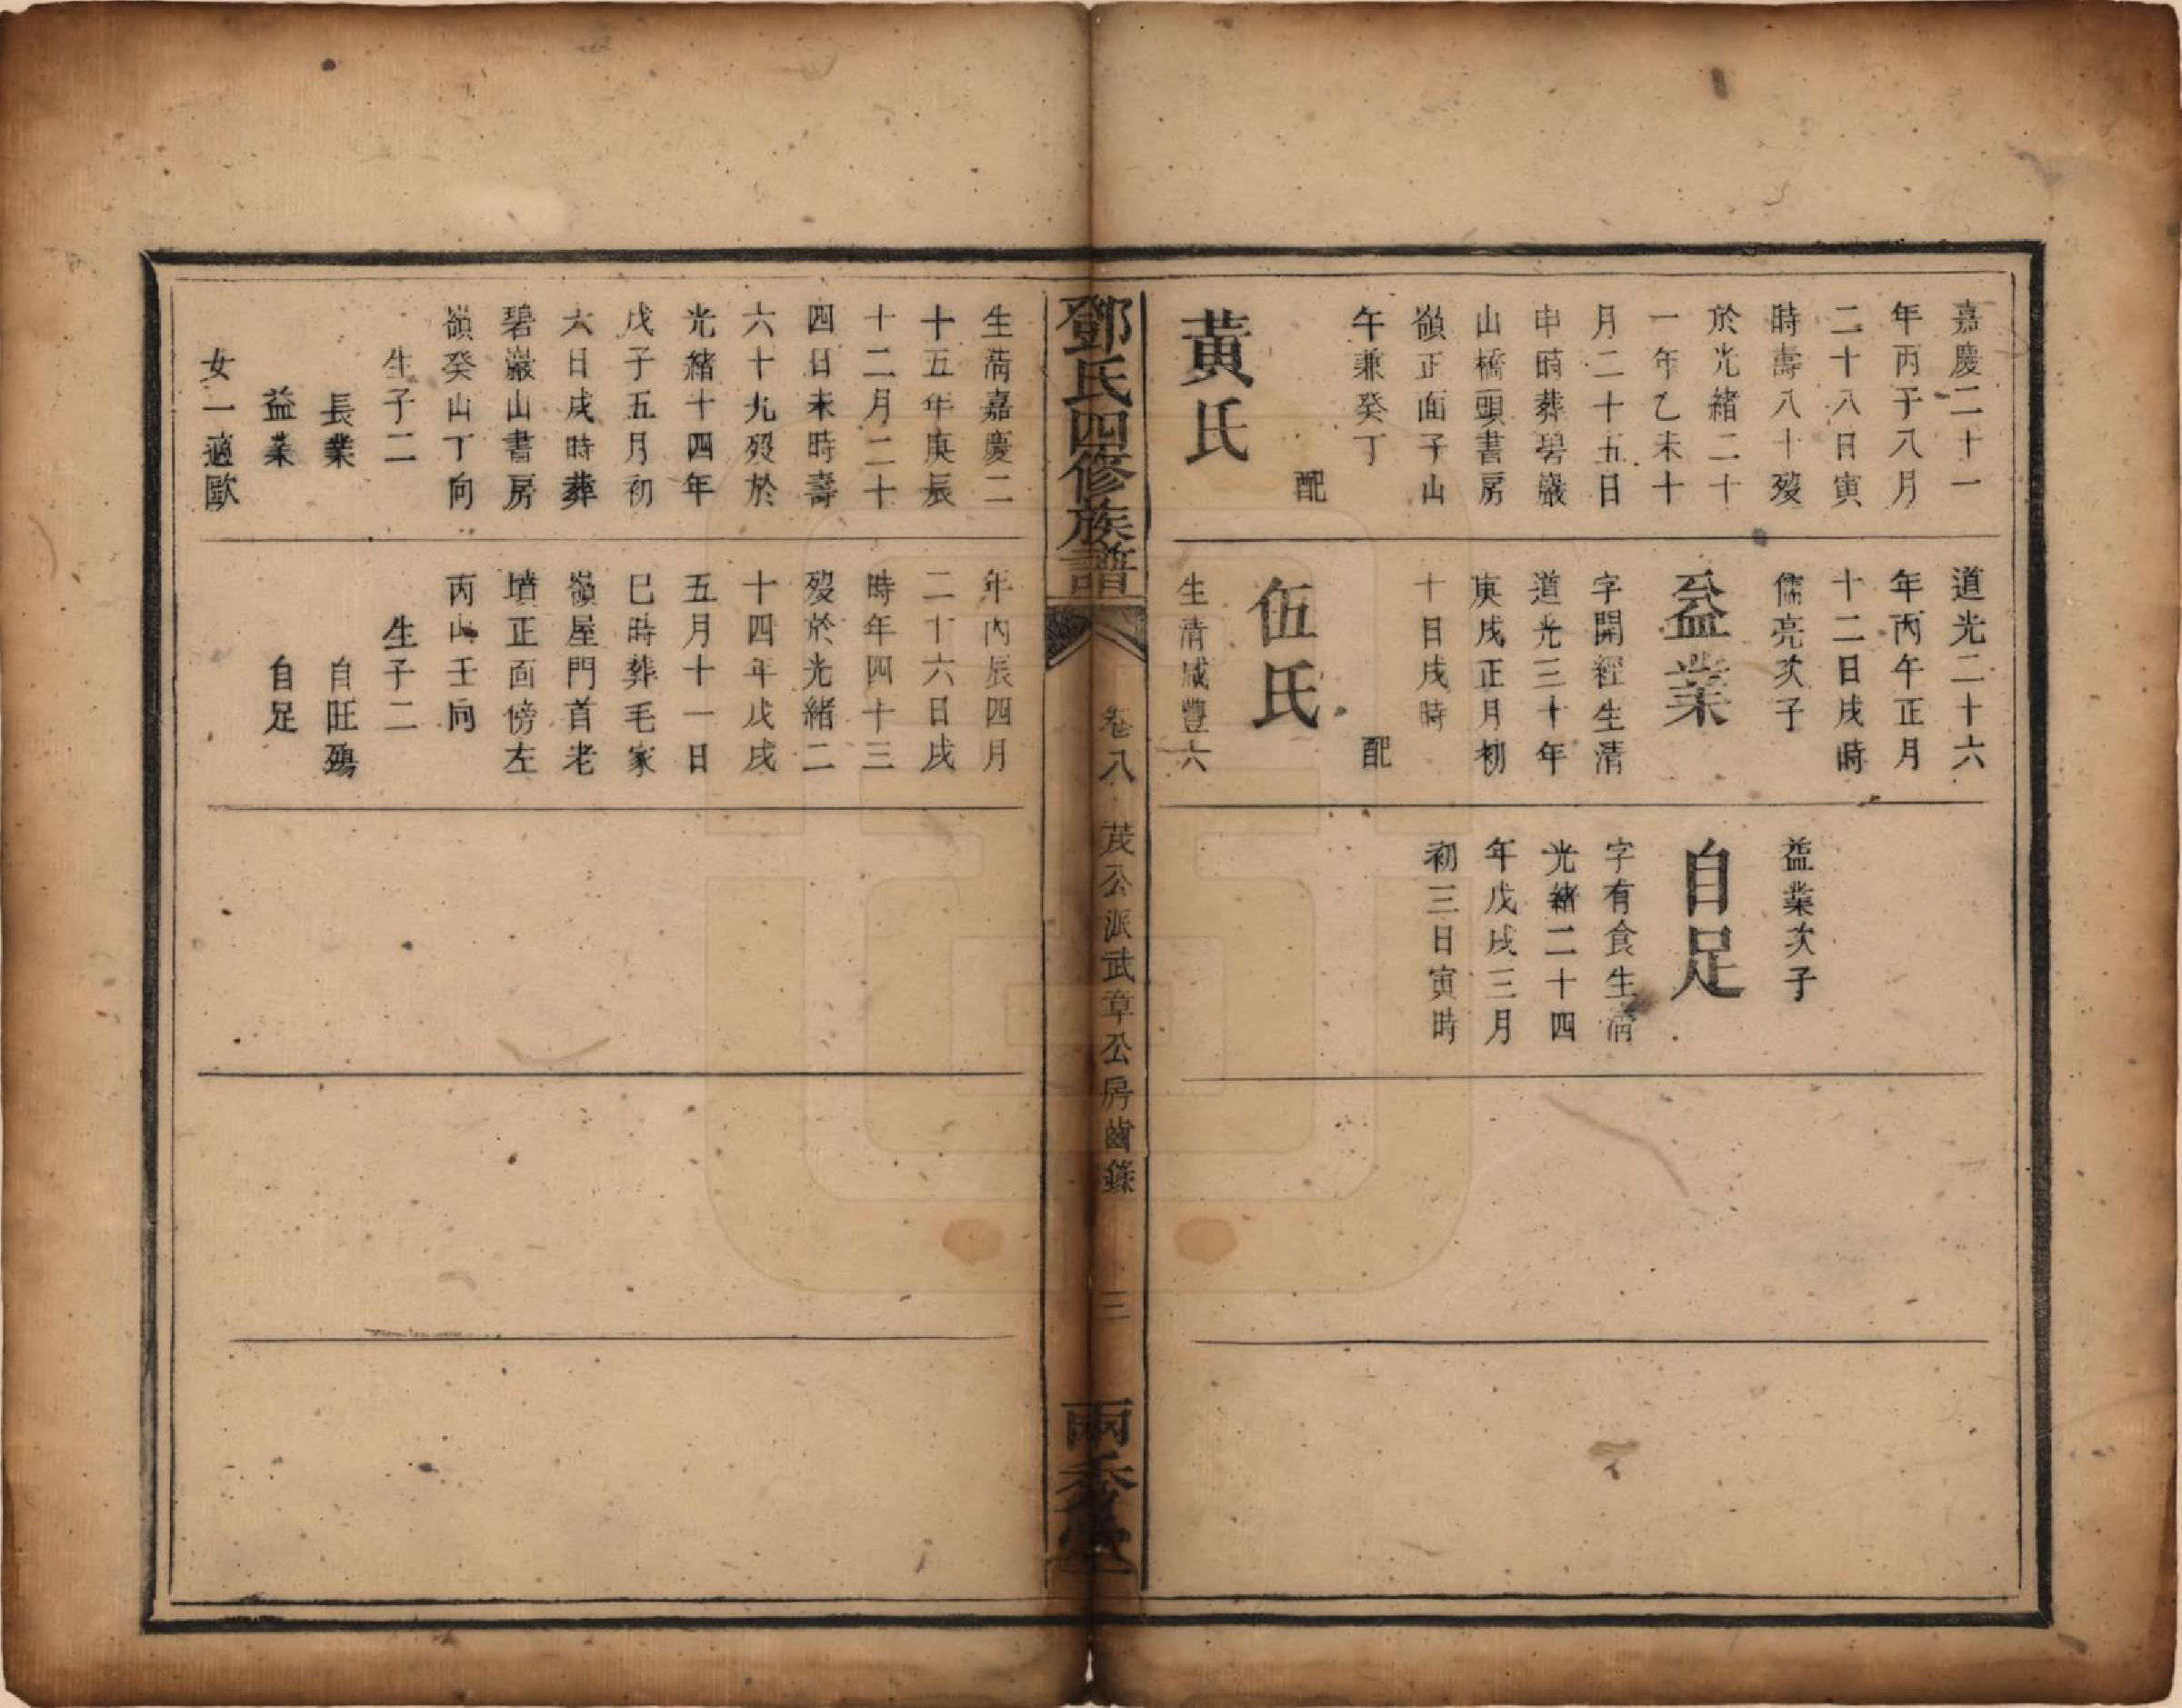 嘉慶二十一
年丙子八月
二十八日寅
時壽八十歿
於光緒二十
一年乙未十
月二十五日
申時葬碧巖
山橋頭書房
嶺正面子山
午兼癸丁
配
黃氏
道光二十六
年丙午正月
十二日戌時
儒亮次子
益業
字開經生清
道光三十年
庚戌正月初
十日戌時
配
伍氏
生清咸豐六
益業次子
自足
字有食生清
光緒二十四
年戊戌三月
初三日寅時
鄧氏四修族譜
卷八
茂公派武章公房齒錄
三
兩秀堂
生清嘉慶二
十五年庚辰
十二月二十
四日未時壽
六十九歿於
光緒十四年
戊子五月初
六日戌時葬
碧巖山書房
嶺癸山丁向
生子二
長業
益業
女一適歐
年丙辰四月
二十六日戌
時年四十三
歿於光緒二
十四年戊戌
五月十一日
巳時葬毛家
嶺屋門首老
墳正面傍左
丙山壬向
生子二
自旺殤
自足